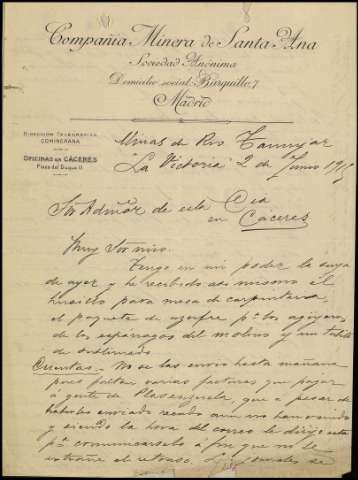 Compañía Minera de Santa Ana
Sociedad Anónima
Domicilio social: Barquillo, 7
Madrid
DIRECCIÓN TELEGRÁFICA
COMINERANA
OFICINAS EN CÁCERES
Plaza del Duque 11
Minas de Rio Tamujar
"La Victoria" 2 de Junio 19
Sor Admor de esta Cia
en Cáceres
Muy Sor mio:
Tengo en mi poder la suya
de ayer y he recibido asi mismo el
para mesa de carpinteria,
el paquete de azufre pa los agujeros
de los espárragos del molino y un
de
Cuentas - No se las envio hasta mañana
pues faltan varias facturas que pagar
á gente de Plasenzuela, que a pesar de
haberles enviado recado aun no han venido
y siendo la hora del correo le dirijo esta
pa comunicarselo á fin que no le
extrañe el retraso. Los jornales se